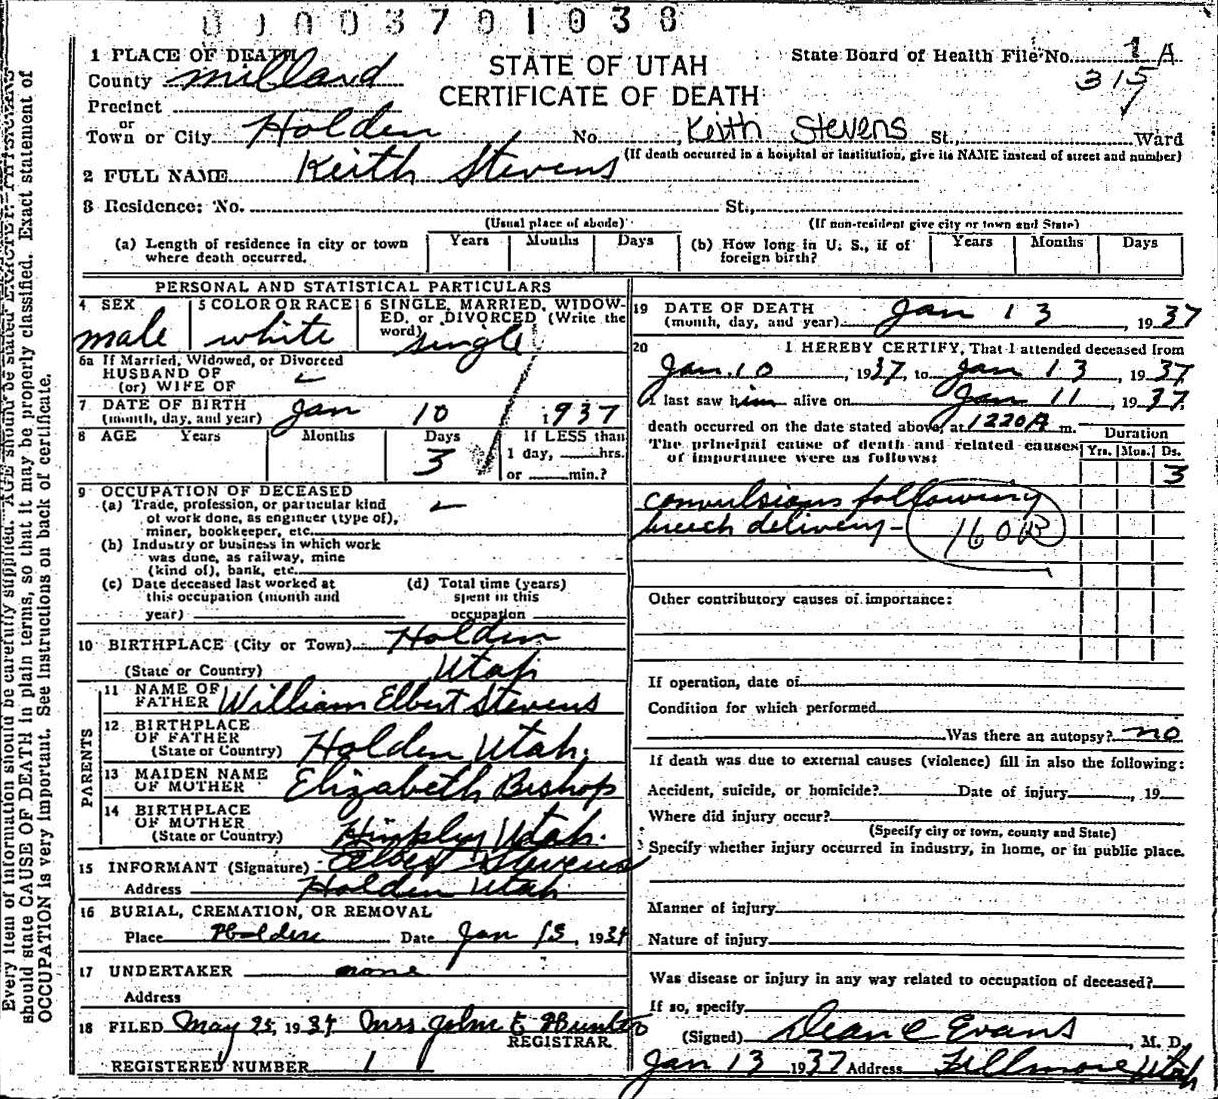 0 1 0 0 3 7 0 1 0 3 8
1 PLACE OF DEATH
County Millard
Precinct
or
Town or City Holden No. , Keith Stevens St., Ward
(If death occurred in a hospital or institution, give its NAME instead of street and number)
STATE OF UTAH
CERTIFICATE OF DEATH
State Board of Health File No. 1 A
315
2 FULL NAME Keith Stevens
3 Residence: No. St.,
(Usual place of abode) (If non-resident give city or town and State)
(a) Length of residence in city or town where death occurred. Years Months Days
(b) How long in U. S., if of foreign birth? Years Months Days
PERSONAL AND STATISTICAL PARTICULARS
4 SEX male
5 COLOR OR RACE white
6 SINGLE, MARRIED, WIDOW-
ED, or DIVORCED (Write the
word) single
6a If Married, Widowed, or Divorced
HUSBAND OF
(or) WIFE OF
7 DATE OF BIRTH
(month, day, and year) Jan 10 1937
8 AGE Years Months Days 3
If LESS than
1 day, hrs.
or min.?
9 OCCUPATION OF DECEASED
(a) Trade, profession, or particular kind
of work done, as engineer (type of),
miner, bookkeeper, etc.
(b) Industry or business in which work
was done, as railway, mine
(kind of), bank, etc.
(c) Date deceased last worked at
this occupation (month and
year)
(d) Total time (years)
spent in this
occupation
10 BIRTHPLACE (City or Town) Holden
(State or Country) Utah
PARENTS
11 NAME OF
FATHER William Elbert Stevens
12 BIRTHPLACE
OF FATHER
(State or Country) Holden Utah.
13 MAIDEN NAME
OF MOTHER Elizabeth Bishop
14 BIRTHPLACE
OF MOTHER
(State or Country) Hinkley Utah.
15 INFORMANT (Signature) Elbert Stevens
Address Holden Utah
16 BURIAL, CREMATION, OR REMOVAL
Place Holden Date Jan 13, 1937
17 UNDERTAKER none
Address
18 FILED May 25, 1937 Mrs. John E Hunter
REGISTRAR.
REGISTERED NUMBER 1
19 DATE OF DEATH
(month, day, and year) Jan 13, 1937
20 I HEREBY CERTIFY, That I attended deceased from
Jan. 10, 1937, to Jan 13, 1937.
I last saw him alive on Jan 11, 1937.
death occurred on the date stated above, at 1220A m.
The principal cause of death and related causes
of importance were as follows:
Duration
Yrs. Mos. Ds.
3
convulsions following
breech delivery - 160B
Other contributory causes of importance:
If operation, date of
Condition for which performed
Was there an autopsy? no
If death was due to external causes (violence) fill in also the following:
Accident, suicide, or homicide? Date of injury , 19
Where did injury occur?
(Specify city or town, county and State)
Specify whether injury occurred in industry, in home, or in public place.
Manner of injury
Nature of injury
Was disease or injury in any way related to occupation of deceased?
If so, specify
(Signed) Dean C Evans, M. D.
Jan 13 1937 Address Fillmore Utah
Every item of information should be carefully supplied. AGE should be stated EXACTLY. PHYSICIANS
should state CAUSE OF DEATH in plain terms, so that it may be properly classified. Exact statement of
OCCUPATION is very important. See instructions on back of certificate.